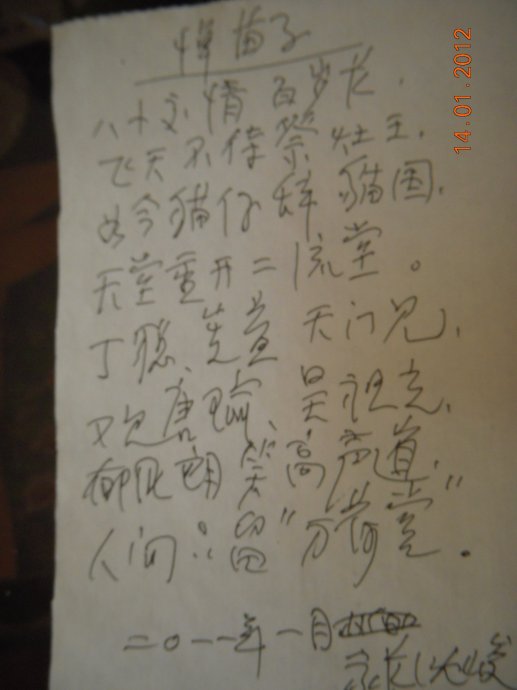 悼苗子
八十交情百岁长，
飞天不待祭灶王，
如今貓仔辞貓国，
天堂重开二流堂。
丁聪、先益天门见，
又见唐瑜、吴祖光，
郁风朗笑高声道，
人间留“万荷堂”。
二〇一一年一月
14.01.2012